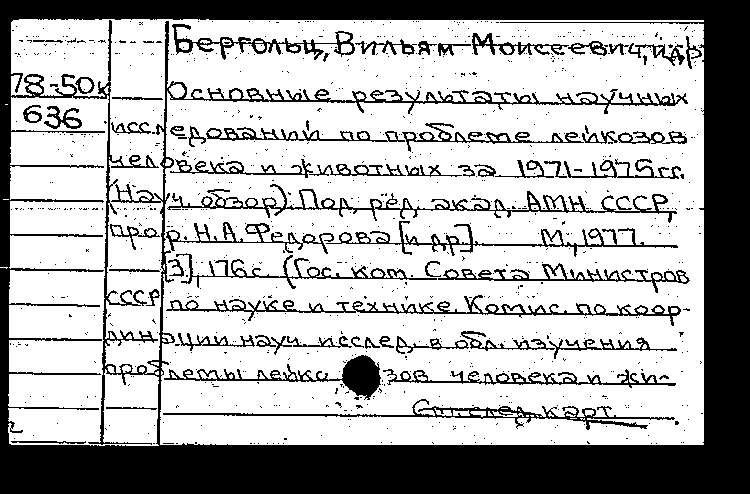 Бергольц, Вильям Моисеевич, и др.
78-50к
636
Основные результаты научных
исследований по проблеме лейкозов
человека и животных за 1971-1975 гг.
(Науч. обзор). Под ред. акад. АМН СССР,
проф. Н.А. Федорова [и др.]. М., 1977.
[3], 176 с. (Гос. ком. Совета Министров
СССР по науке и технике. Комис. по коор-
динации науч. исслед. в обл. изучения
проблемы лейкозов человека и жи-
См. след. карт.